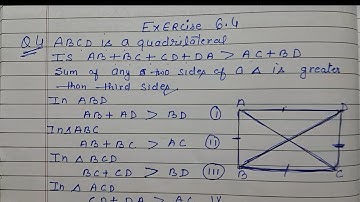 Exercise 6.4
Q4 ABCD is a quadrilateral
Is AB+BC+CD+DA > AC+BD
Sum of any two sides of a Δ is greater
than third sides.
In ABD
AB+AD > BD I
In ΔABC
AB+BC > AC II
In Δ BCD
BC+CD > BD III
In Δ ACD
CD+DA > AC IV
A D
B C